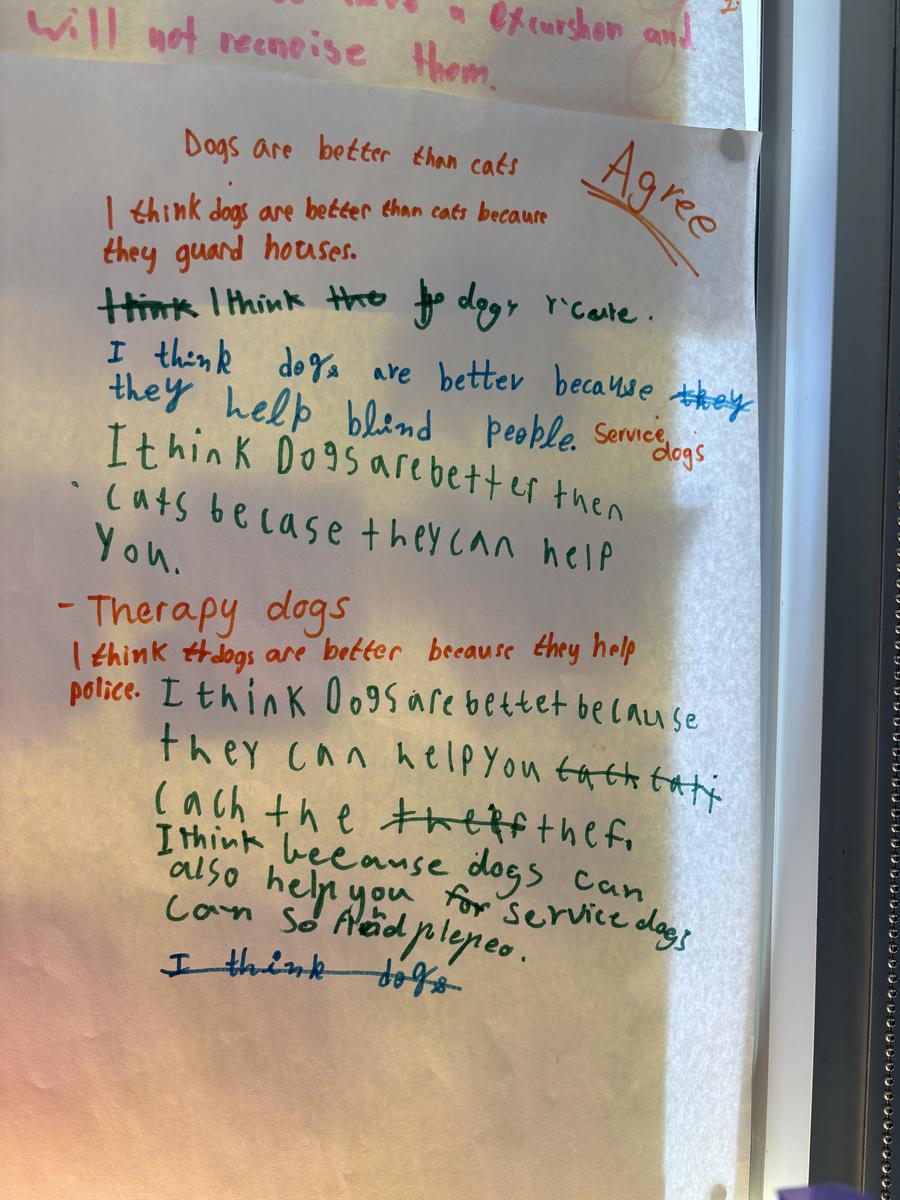 have a excurshon and
will not recnoise them.
Dogs are better than cats
Agree
I think dogs are better than cats because
they guard houses.
I think dogs r cute.
I think dogs are better because they
they help blind people. Service dogs
I think Dogs are better then
cats becase they can help
you.
- Therapy dogs
I think dogs are better because they help
police.
I think Dogs are better because
they can help you
cach the thef.
I think beecause dogs can
also help you for service dogs
can so plepeo.
I think dogs